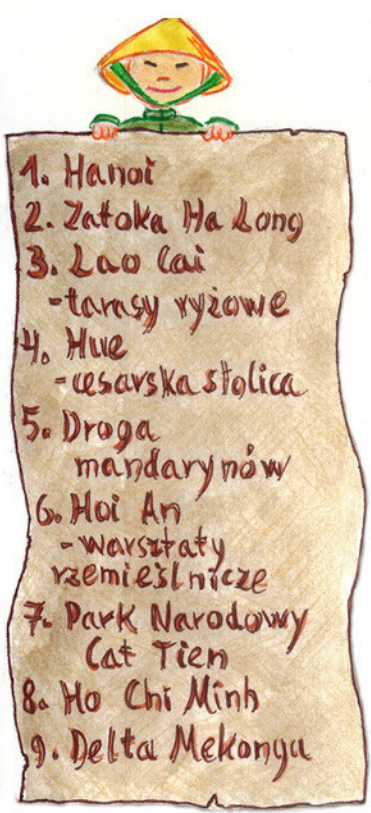 1. Hanoi
2. Zatoka Ha Long
3. Lao Cai
-tarasy ryżowe
4. Hue
-cesarska stolica
5. Droga
mandarynów
6. Hoi An
-warsztaty
rzemieślnicze
7. Park Narodowy
Cat Tien
8. Ho Chi Minh
9. Delta Mekongu